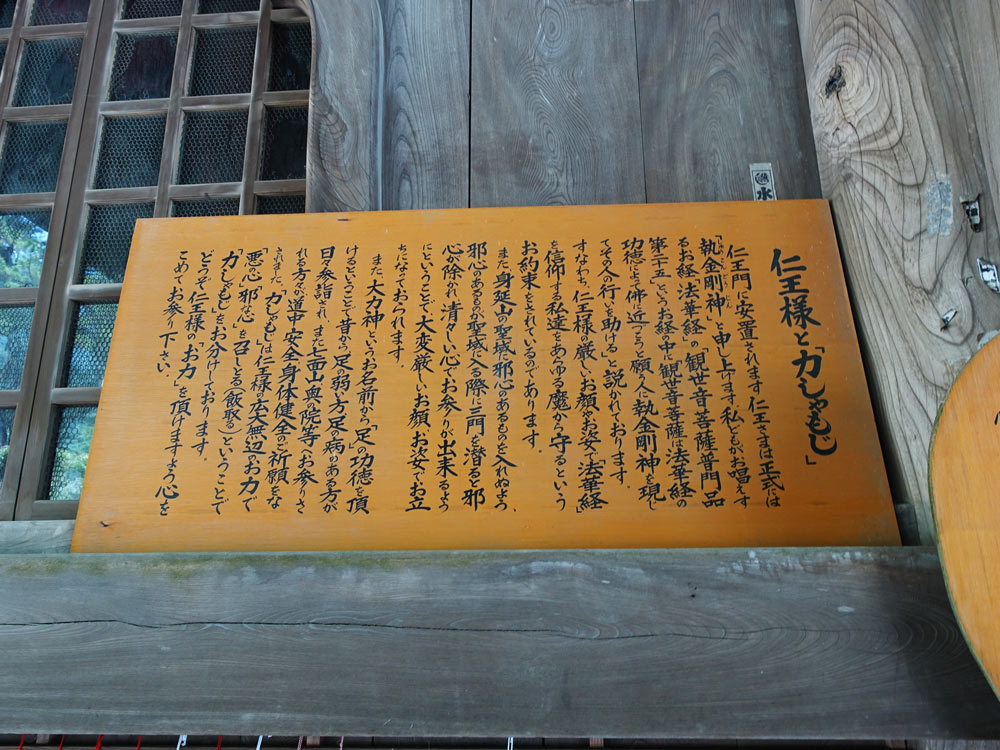 仁王様と「力しゃもじ」
仁王門に安置されます仁王さまは正式には
「執金剛神」と申し上げます。私どもがお唱えす
るお経、法華経の「観世音菩薩普門品
第二十五」というお経の中に観世音菩薩は法華経の
功徳にて佛に近づこうと願う人に執金剛神を現し
てその人の行を助ける、と説かれております。
すなわち、仁王様の厳しいお顔、お姿で「法華経」
を信仰する私達をあらゆる魔から守るという
お約束をされているのであります。
また、身延山の聖域に邪心のあるものを入れぬよう、
邪心のあるものが聖域に入る際に三門を潜ると邪
心が除かれ、清々しい心でお参りが出来るよう
にということで大変厳しいお顔、お姿でお立
ちになっておられます。
また、大力神というお名前から「足」の功徳を頂
けるということで昔から足の弱い方、足の病のある方が
日々参詣され、また七面山、奥の院等へお参りさ
れる方々の道中安全、身体健全の祈願をな
されました。「力しゃもじ」は仁王様の広大無辺の「お力」で
「悪い心」「邪心」を召しとる(飯取る)ということで
「力しゃもじ」をお分けしております。
どうぞ、仁王様の「お力」を頂けますよう心を
こめてお参り下さい。
水